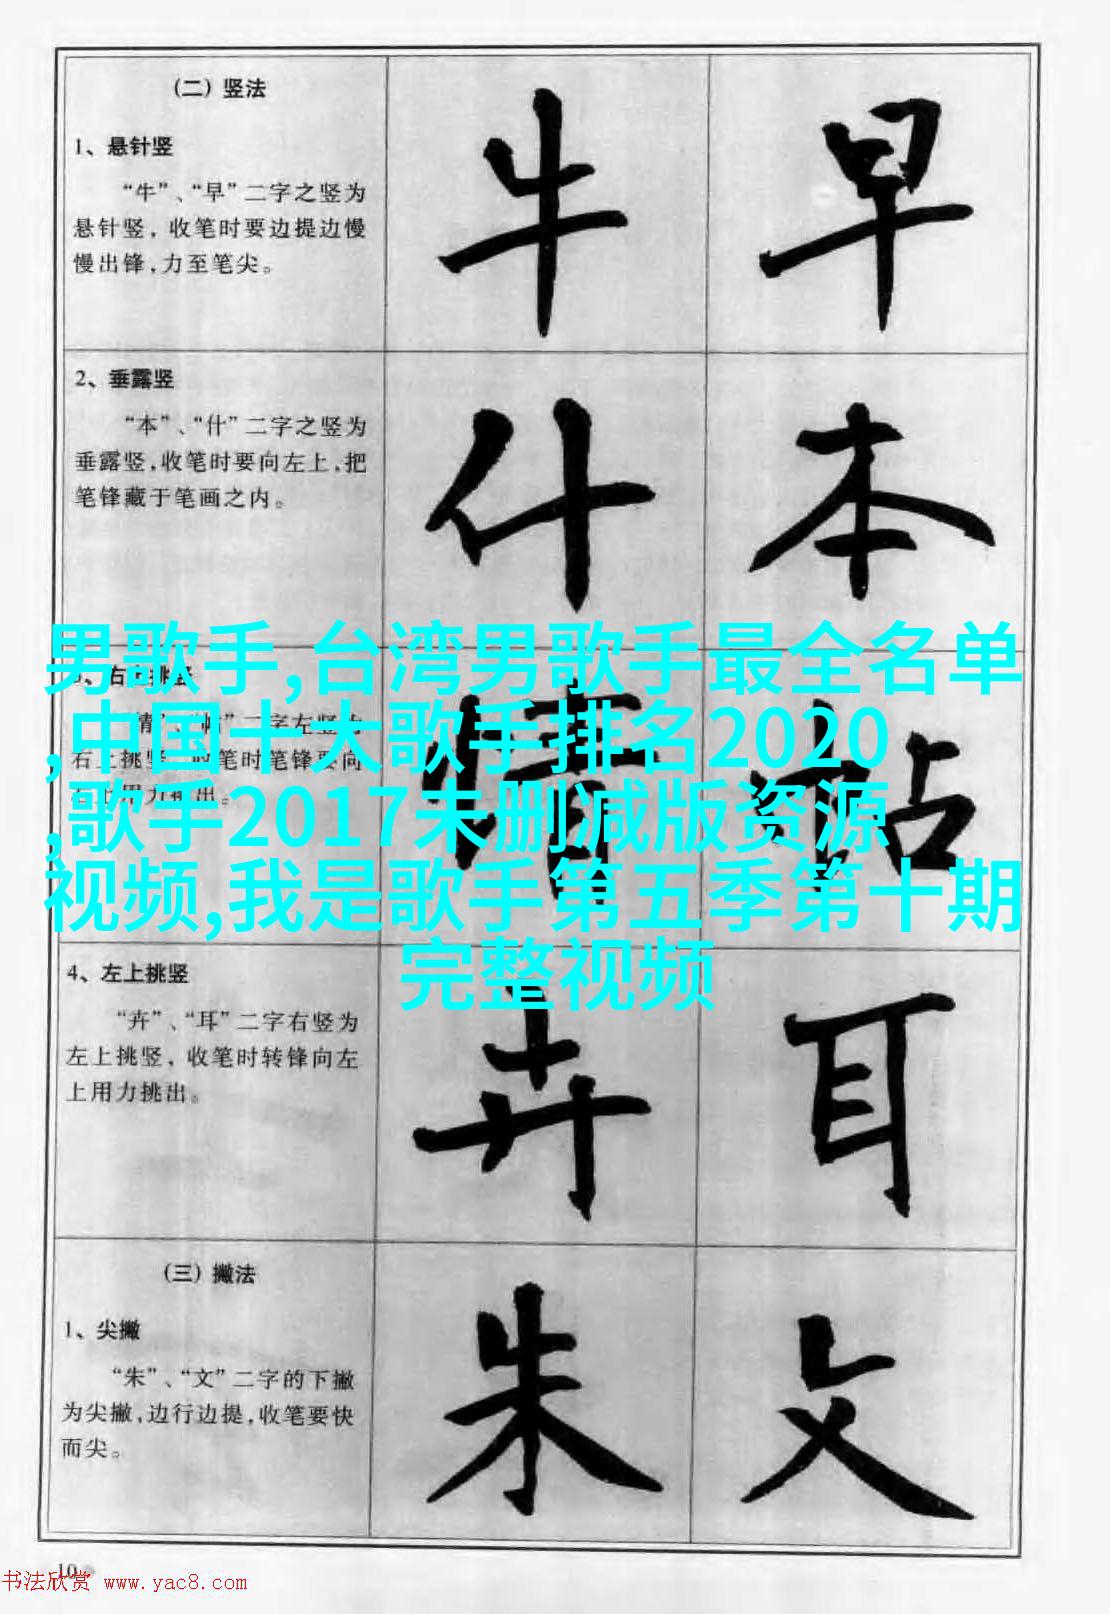 (二) 竖法
1、悬针竖
“牛”、“早”二字之竖为
悬针竖, 收笔时要边提边慢
慢出锋,力至笔尖。
牛 早
2、垂露竖
“本”、“什”二字之竖为
垂露竖,收笔时要向左上,把
笔锋藏于笔画之内。
什 本
男歌手,台湾男歌手最全名单
,中国十大歌手排名2020
,歌手2017未删减版资源
视频,我是歌手第五季第十期
完整视频
右上挑竖
二字左竖为
右上挑竖 收笔时笔锋要向
右上用力挑出。
情 帖
4、左上挑竖
“卉”、“耳”二字右竖为
左上挑竖, 收笔时转锋向左
上用力挑出。
卉 耳
(三) 撇法
1、尖撇
“朱”、“文”二字的下撇
为尖撇,边行边提,收笔要快
而尖。
朱 文
10
书法欣赏 www.yac8.com